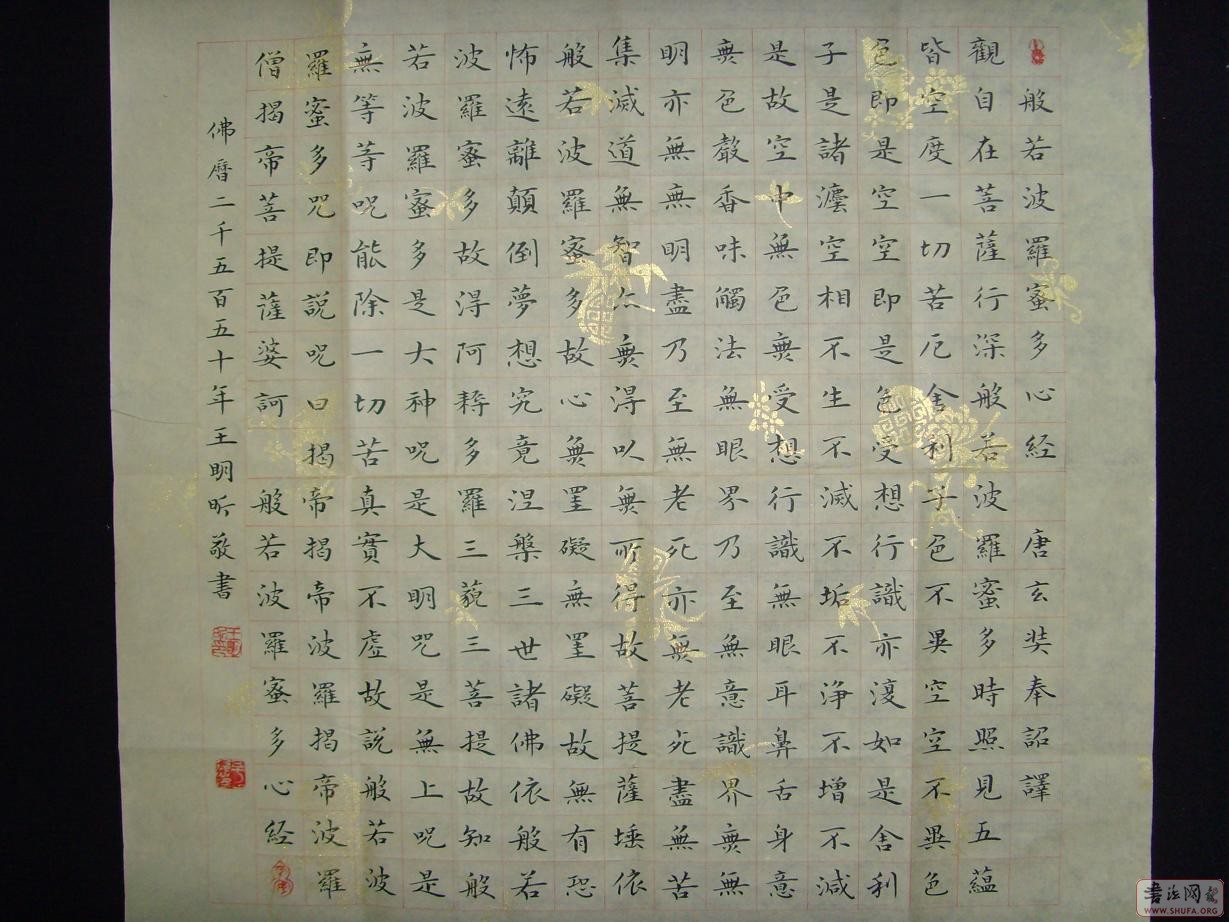 般若波羅蜜多心经 唐玄奘奉詔譯
觀自在菩薩行深般若波羅蜜多時照見五蘊
皆空度一切苦厄舍利子色不異空空不異色
色即是空空即是色受想行識亦復如是舍利
子是諸灋空相不生不滅不垢不淨不增不減
是故空中無色無受想行識無眼耳鼻舌身意
無色聲香味觸法無眼界乃至無意識界無無
明亦無無明盡乃至無老死亦無老死盡無苦
集滅道無智亦無得以無所得故菩提薩埵依
般若波羅蜜多故心無罣礙無罣礙故無有恐
怖遠離顛倒夢想究竟涅槃三世諸佛依般若
波羅蜜多故得阿耨多羅三藐三菩提故知般
若波羅蜜多是大神呪是大明呪是無上呪是
無等等呪能除一切苦真實不虛故說般若波
羅蜜多咒即說呪曰揭帝揭帝波羅揭帝波羅
僧揭帝菩提薩婆訶 般若波羅蜜多心经
佛曆二千五百五十年王明昕敬書
書法网
WWW.SHUFA.ORG